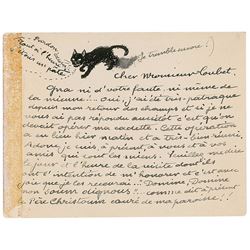 Pardon
(je tremble encore!)
Cher Monsieur Loubet,
Qua ni d'votre faute, ni même de
la mienne... oui, j'ai été très patraque
depuis mon retour des champs et si je ne
vous ai pas répondu aussitôt c'est qu'on
devait opérer ma cadette. Cette opération
a eu lieu hier matin et a très bien réussi
donc, je suis, à présent, à vous et à vos
amis qui sont les miens. Veuillez me dire
le jour et l'heure de la visite dont ils
ont l'intention de m'honorer et c'est avec
joie que je les recevrai...
non
comme dit à présent
Père Christoum curé de ma paroisse!